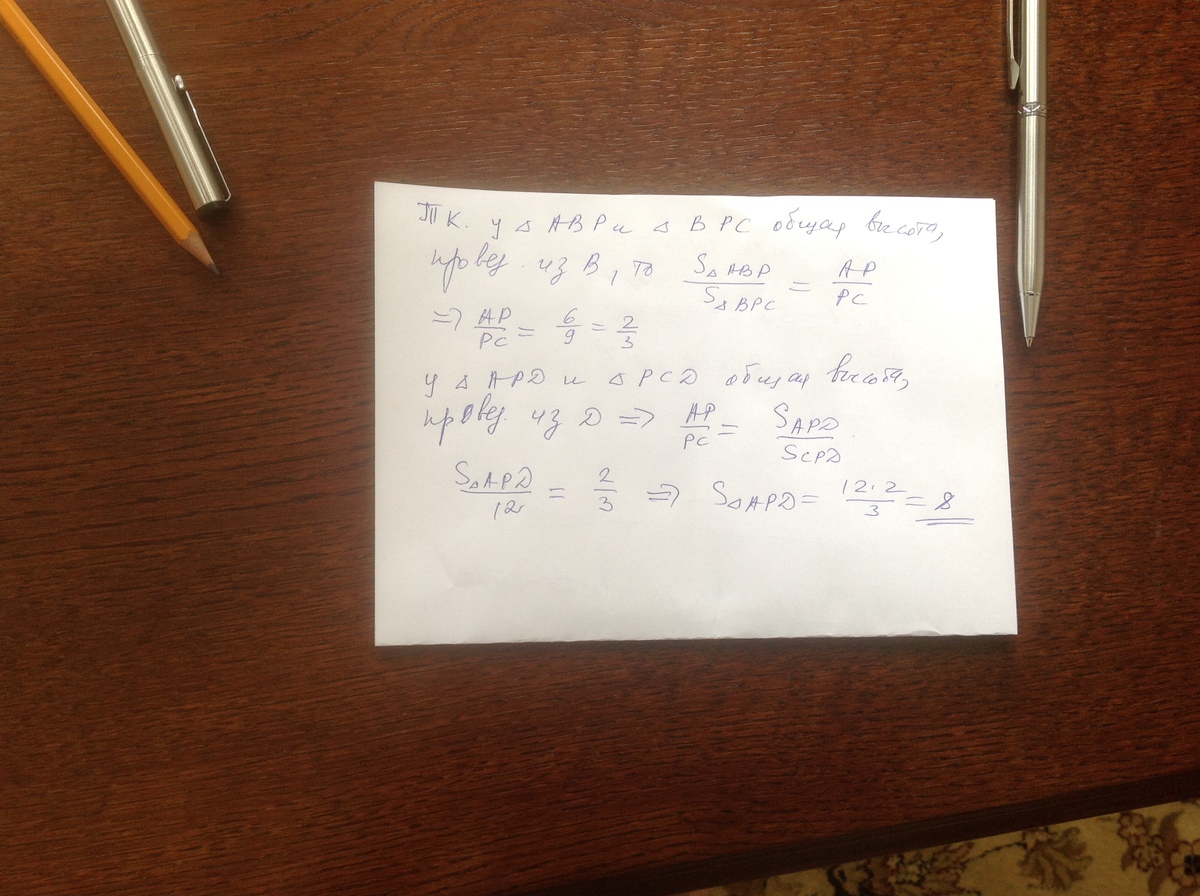 Т к. у △ ABP и △ BPC общая высота,
провед. из B, то S△ABP/S△BPC = AP/PC
=> AP/PC = 6/9 = 2/3
у △ APD и △ PCD общая высота,
провед. из D => AP/PC = SAPD/SCPD
S△APD/12 = 2/3 => S△APD = 12·2/3 = 8